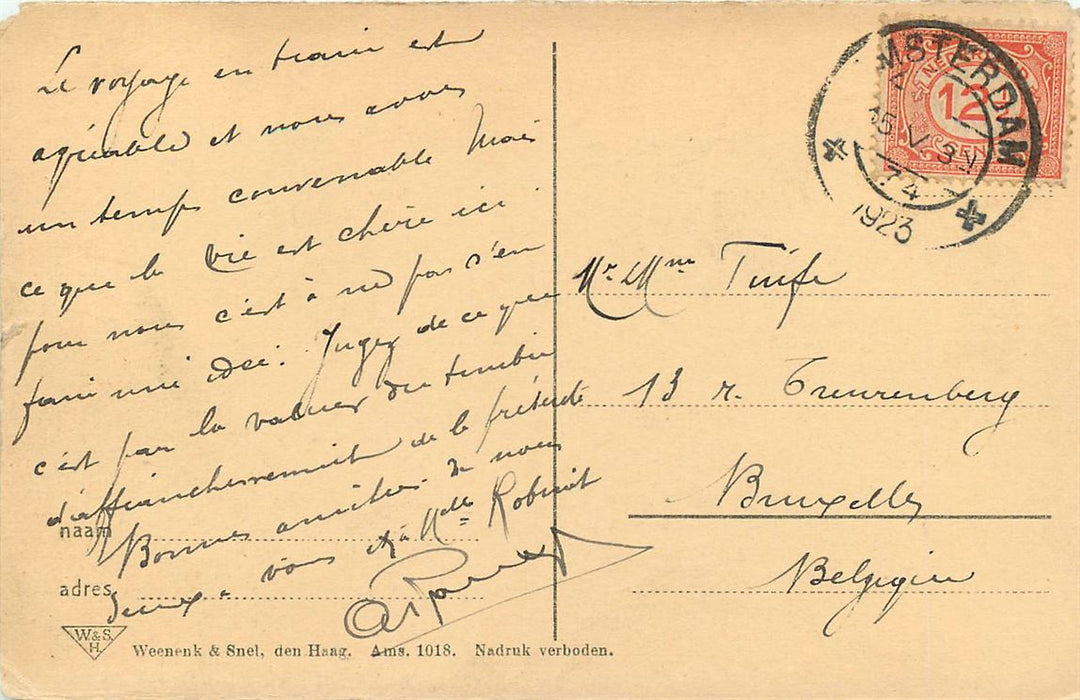 Le voyage en train est
agréable et nous avons
un temps convenable Mais
ce que la Vie est chère ici
pour nous c'est à ne pas s'en
faire une idée. Jugez de ce que
c'est par la valeur du timbre
d'affranchissement de la présente
Bonnes amitiés de nous
deux à vous et à Melle Robinet
naam
adres
W.&S.
H.
Weenenk & Snel, den Haag. Ams. 1018. Nadruk verboden.
AMSTERDAM
1923
12½
CENT
Mr & Mme
13 r. Treurenberg
Bruxelles
Belgique